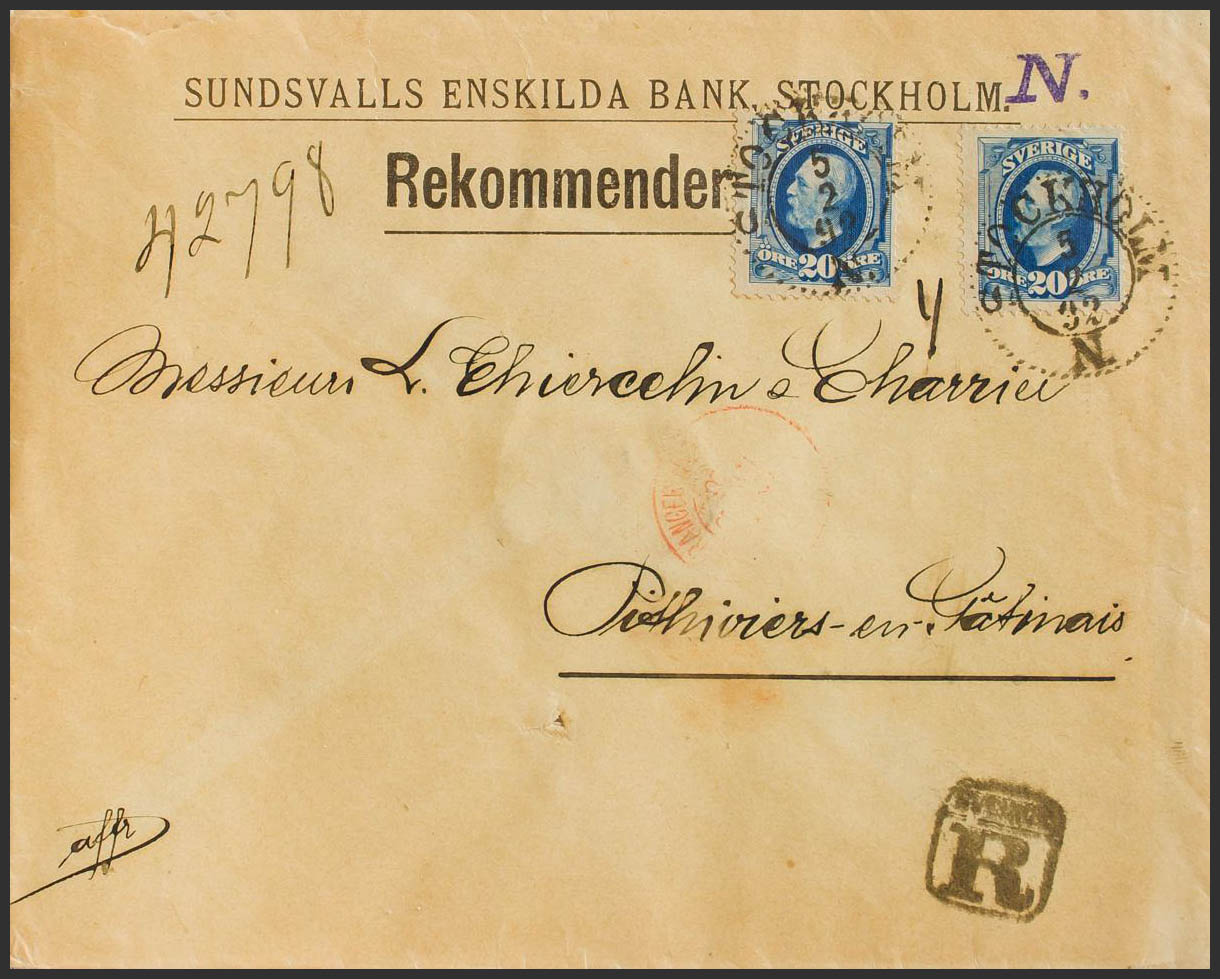 SUNDSVALLS ENSKILDA BANK, STOCKHOLM. N.
42798
Rekommender
SVERIGE
5
2
92
ÖRE 20 ÖRE
N.
SVERIGE
STOCKHOLM
5
2
92
ÖRE 20 ÖRE
N.
Messieurs L. Thiercelin & Charrier
Pithiviers-en-Gâtinais
affr
R